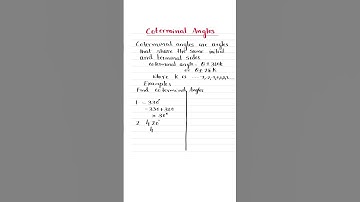 Coterminal Angles
Coterminal angles are angles
that share the same initial
and terminal sides
coterminal angle: θ ± 360k
or θ ± 2πk
where k is
Examples
Find coterminal Angles
1. -330°
-330+360
= 30°
2. 420°